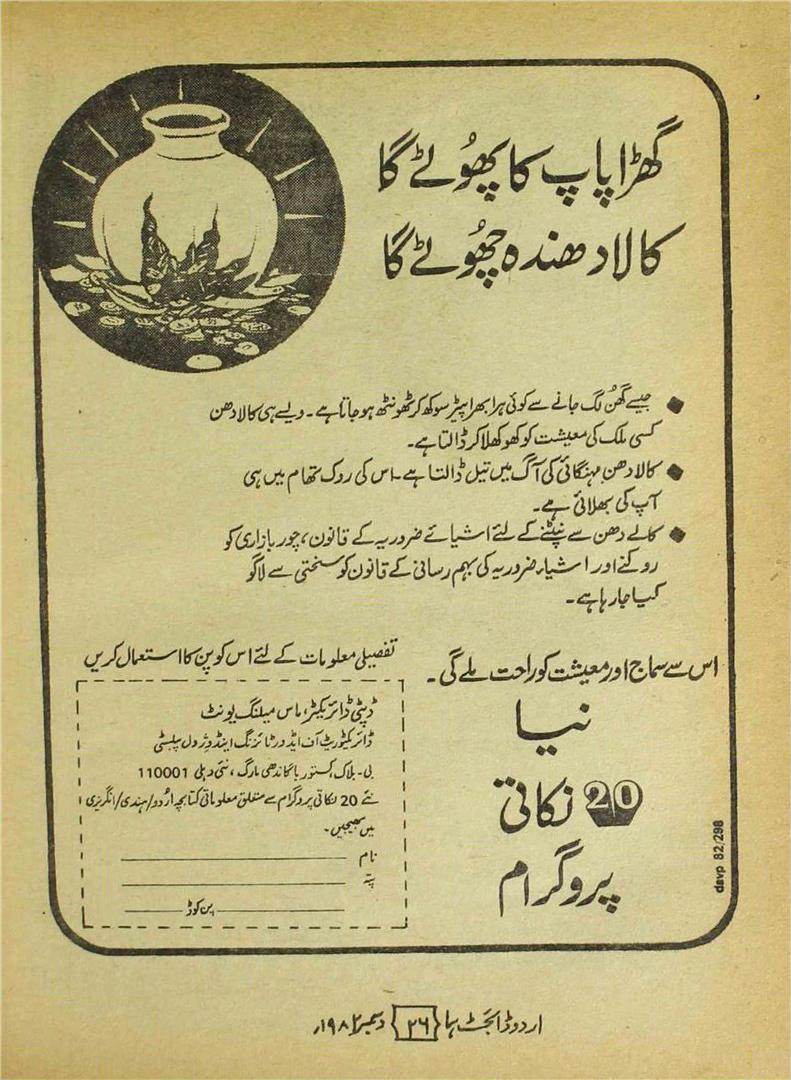 گھڑا پاپ کا پھُوٹے گا
کالا دھندہ چھُوٹے گا
جیسے گھُن لگ جانے سے کوئی ہرا بھرا پیڑ سوکھ کر ٹھونٹھ ہو جاتا ہے۔ ویسے ہی کالا دھن
کسی ملک کی معیشت کو کھوکھلا کر ڈالتا ہے۔
کالا دھن مہنگائی کی آگ میں تیل ڈالتا ہے۔ اس کی روک تھام میں ہی
آپ کی بھلائی ہے۔
کالے دھن سے نپٹنے کے لئے اشیائے ضروریہ کے قانون، چور بازاری کو
روکنے اور اشیاء ضروریہ کی بہم رسانی کے قانون کو سختی سے لاگو
کیا جا رہا ہے۔
اس سے سماج اور معیشت کو راحت ملے گی۔
نیا
20 نکاتی
پروگرام
تفصیلی معلومات کے لئے اس کوپن کا استعمال کریں
ڈپٹی ڈائریکٹر، ماس میلنگ یونٹ
ڈائرکٹوریٹ آف ایڈورٹائزنگ اینڈ وژول پبلسٹی
بی۔ بلاک کستوربا گاندھی مارگ، نئی دہلی 110001
نئے 20 نکاتی پروگرام سے متعلق معلوماتی کتابچہ اُردو/ہندی/انگریزی
میں بھیجیں۔
نام
پتہ
پن کوڈ
davp 82/298
اردو ڈائجسٹ ہما {۲۶} دسمبر ۱۹۸۲ء